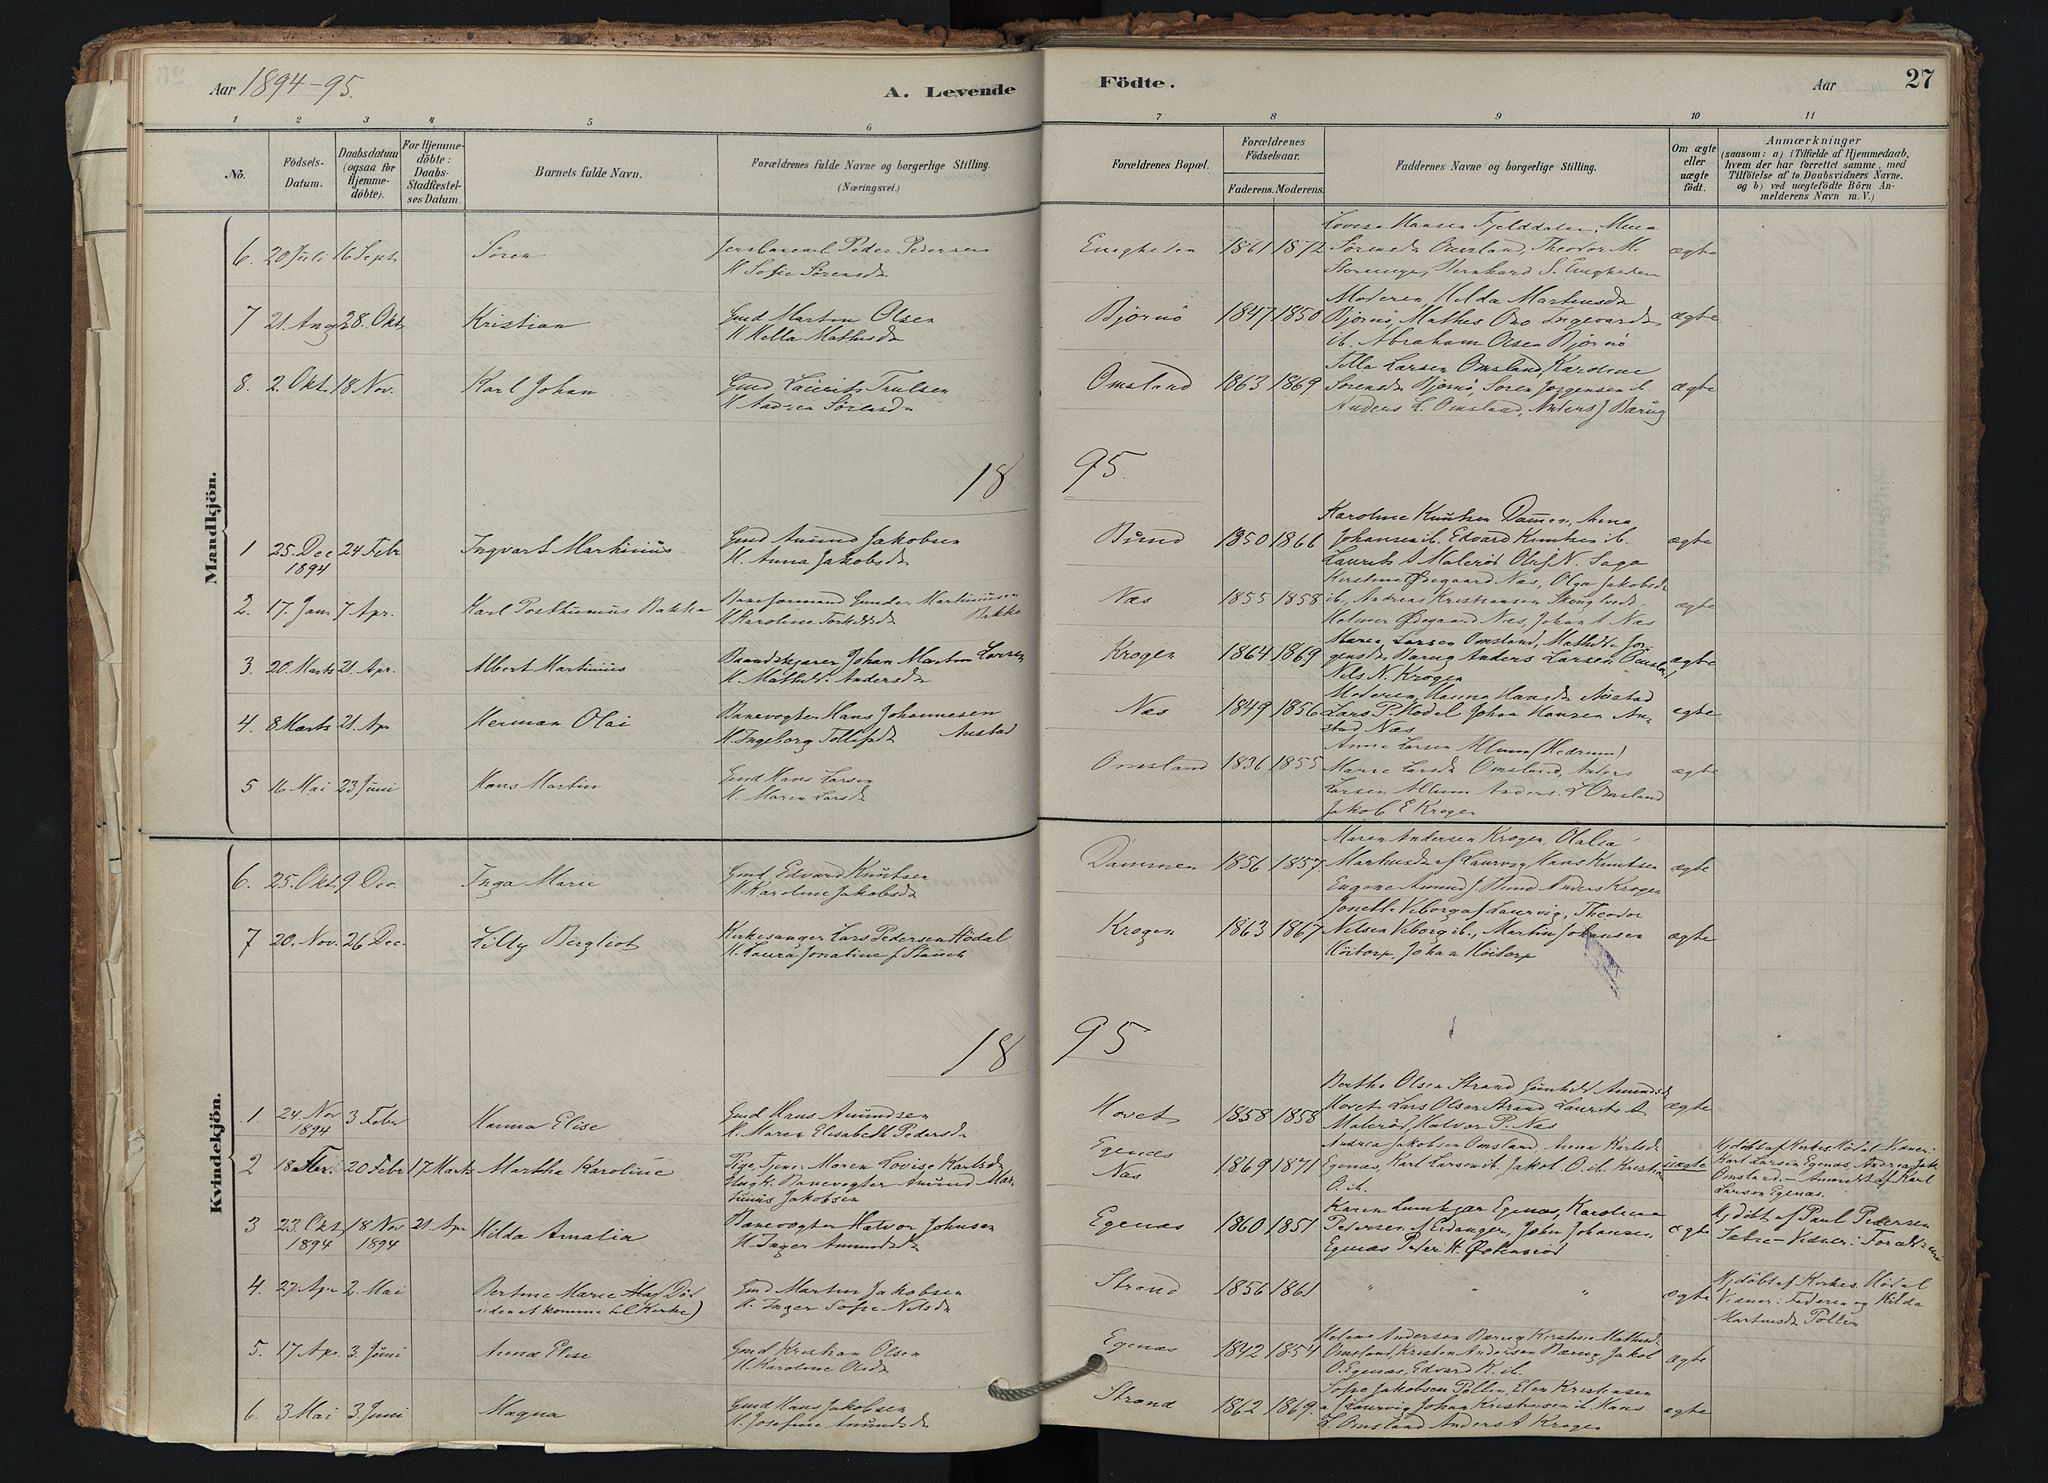 Aar 1894-95.
A. Levende
Födte.
Aar
27
1 2 3 4 5 6 7 8 9 10 11
No.
Födsels-
Datum.
Daabsdatum
(ogsaa for
Hjemme-
döbte).
For Hjemme-
döbte:
Daabs-
Stadfæstel-
ses Datum.
Barnets fulde Navn.
Forældrenes fulde Navne og borgerlige Stilling.
(Næringsvei.)
Forældrenes Bopæl.
Forældrenes
Födselsaar.
Faderens. Moderens.
Faddernes Navne og borgerlige Stilling.
Om ægte
eller
uægte
födt.
Anmærkninger
(saasom: a) i Tilfælde af Hjemmedaab,
hvem der har forrettet samme, med
Tilföielse af to Daabsvidners Navne,
og b) ved uægtefödte Börn An-
melderens Navn m. V.)
Mandkjön.
6. 20 Juli 16 Sept. Sören
Peder Pedersen
K. Sofie Sørensd.
Engheden 1861 1872
Lovise Hansen Fjelddalen,
Sørensd. Omsland, Theodor M.
Bernhard S. Engheden
ægte
7 21. Aug 28. Okt Kristian
Gmd Martin Olsen
K. Mathisd.
Bjørnø 1847 1850
Moderen, Hilda Martinsd.
Bjørnø, Mathis
ib. Abraham Olsen Bjørnø
ægte
8. 2. Okt. 18 Nov. Karl Johan
Gmd Laurits Trulsen
K. Andrea Sörensd.
Omsland 1863 1869
Larsen Omsland, Karoline
Sørensd. Bjørnø, Søren Jørgensen ib.
Anders L. Omsland, Anders J Bærug
ægte
1895.
1 25. Dec 1894 24 Febr Ingvart Martinius
Gmd Amund Jakobsen
K. Anna Jakobsd.
1850 1866
Karoline Knutsen Dammen, Anna
Johansen ib. Edvard Knutsen ib.
Laurits A Malerød Olaf N. Saga
ægte
2. 17. Jan. 7 Apr. Karl Posthumus Bakka
Baneformand Gunder Martiniusen Bakke
K. Karoline Torkildsd.
Næs 1855 1858
Kirstine Ødegaard Næs, Olga Jakobsd.
ib. Andreas Kristiansen
Helmer Ødegaard Næs, Johan A Næs
ægte
3 20. Marts 21. Apr. Albert Martinius
Johan Martin Larsen
K. Mathilde Andersd.
Krogen 1864 1869
Maren Larsen Omsland, Mathilde Jör-
gensd. Bærug Anders Larsen Omsland,
Nils N. Krogen
ægte
4 8 Marts 21. Apr Herman Olai
Banevogter Hans Johannesen Austad
K. Ingeborg Tollefsd.
Næs 1849 1856
Moderen, Hanna Hansd. Austad
Lars P. Johan Hansen Au-
stad Næs
ægte
5 16 Mai 23 Juni Hans Martin
Gmd Hans Larsen
K. Maren Larsd.
Omsland 1836 1855
Anne Larsen Allum (Hedrum)
Larsd. Omsland, Anders
Larsen Allum Anders L Omsland
Jakob E Krogen
ægte
Kvindekjön.
6. 25. Okt. 9 Dec. Inga Marie
Gmd. Edvard Knutsen
K. Karoline Jakobsd.
Dammen 1856 1857
Maren Andersen Krogen, Olalia
Markusd. af Laurvig Hans Knutsen
Engene Amund J. Anders Krogen
ægte
7 20. Nov. 26 Dec. Lilly Bergliot
Kirkesanger Lars Pedersen Hödal
K. Laura Jonatine f Stauch
Krogen 1863 1867
Viborg af Laurvig, Theodor
Nilsen Viborg ib., Martin Johansen
Høitorp, Johan Høitorp
ægte
1895
1. 24 Nov 1894 3 Febr Hanna Elise
Gmd Hans Amundsen
K. Maren Elisabeth Pedersd.
Hovet 1858 1858
Berthe Olsen Strand Gunhild Amundsd.
Hovet Lars Olsen Strand Laurits A
Malerød, Halvor P. Næs
ægte
2 18 20 Febr 17 Marts Martha Karoline
Pige, Tjener Maren Lovise Karlsd.
Ungk. Banevogter Amund Mar-
tinius Jakobsen
Egenæs
Næs
1869 1871
Andrea Jakobsen Omsland, Anna Karlsd.
Egenæs, Karl Larsen ib. Jakob O. ib. Kristian
O. ib.
uægte
Hjdöbt af Kirkes. Hödal Vidner:
Karl Larsen Egenæs, Andrea Jak.
Omsland. - Anmeldt af Karl
Larsen Egenæs.
3 23. Okt. 1894 18 Nov 1894 21 Apr Hilda Amalia
Banevogter Halvor Johnsen
K. Inger Amundsd.
Egenæs 1860 1851
Karen Egenæs, Karoline
Pedersen af Eidanger, John Johansen
Egenæs Peder H.
ægte
Hjdöbt af Paul Pedersen
Vidner: Forældrene
4. 27 Apr 2. Mai Bertine Marie (Död
uden at komme til Kirke)
Gmd Martin Jakobsen
K. Inger Sofie Nilsd.
Strand 1856 1861
" " "
ægte
Hjdöbt af Kirkes. Hödal
Vidner: Faderen og Hilda
Martinsd. Pöllen
5. 17 Apr. 3. Juni Anna Elise
Gmd Kristian Olsen
K. Karoline Olsd.
Egenæs 1842 1854
Helene Andersen Bærug Kirstine Mathisd.
Omsland, Kristen Andersen Bærug Jakob
O. Egenæs, Edvard K. ib.
ægte
6. 3 Mai 3. Juni Magna
Gmd Hans Jakobsen
K. Josefine Amundsd.
Strand 1862 1869.
Sofie Jakobsen Pöllen, Elen Kristensen
af Laurvig Johan Kristensen ib. Hans
L. Omsland Anders A Krogen
ægte